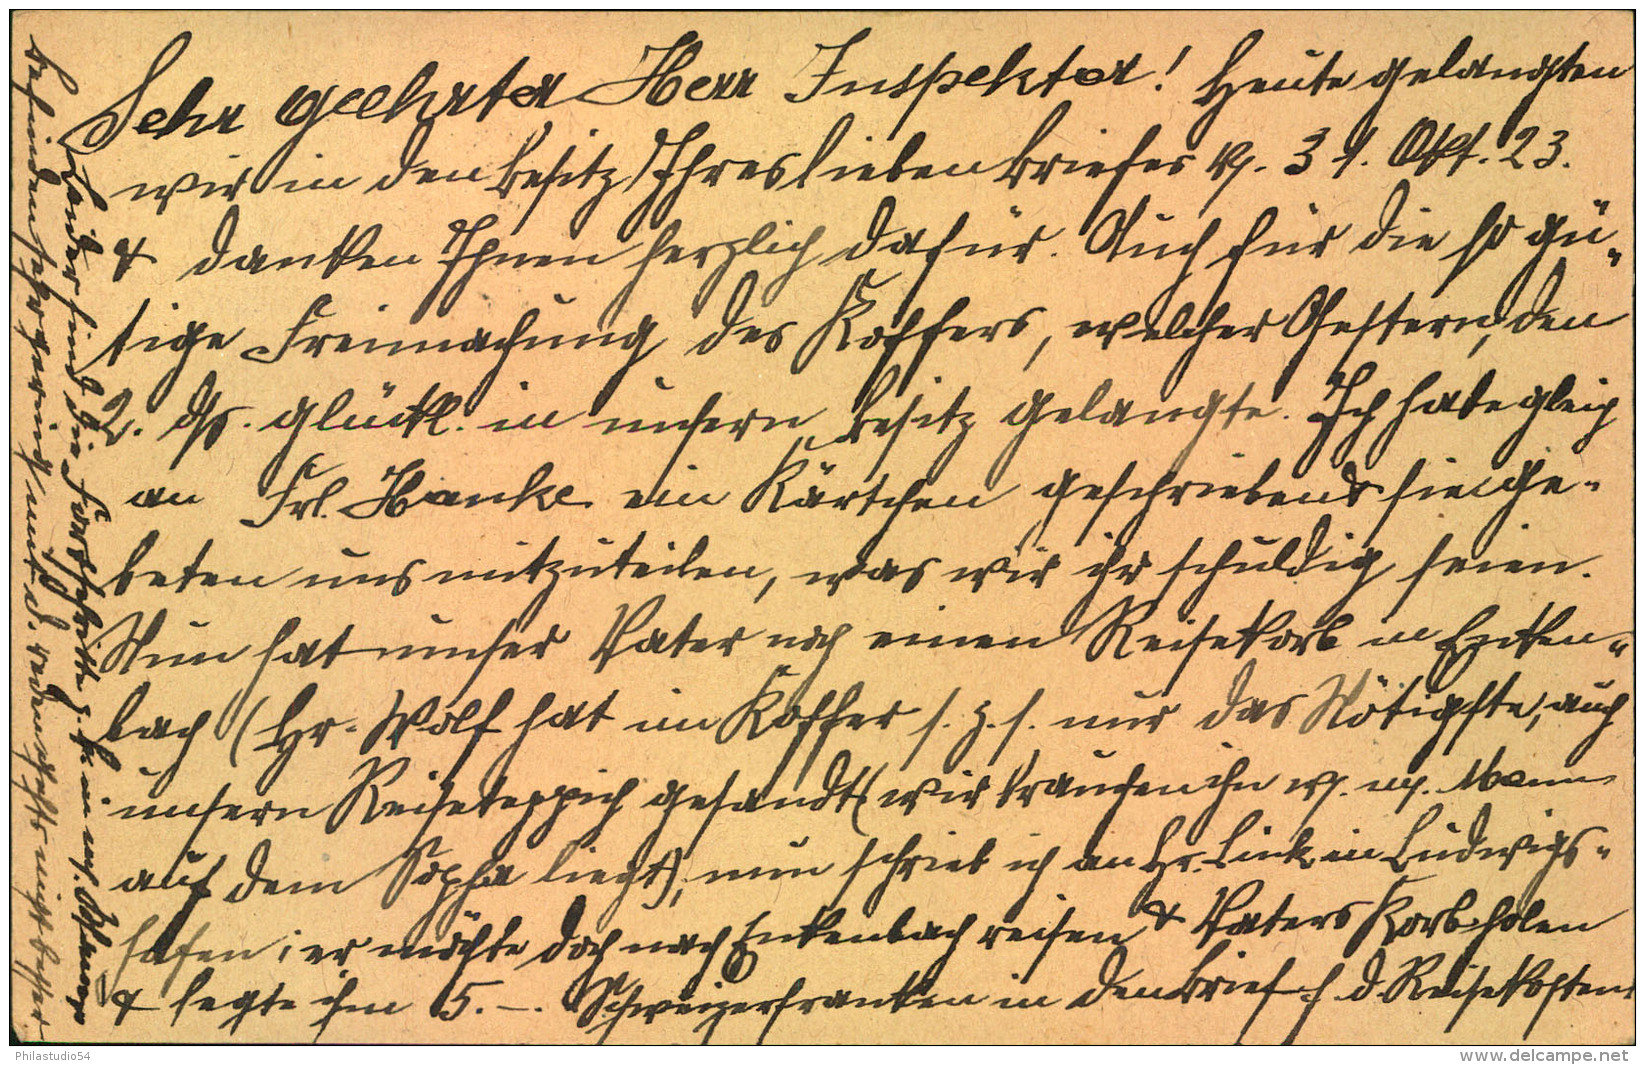 Sehr geehrter Herr Inspektor! Heute gelangten
wir in den Besitz Ihres lieben Briefes v. 31. Okt. 23.
& danken Ihnen herzlich dafür. Auch für die so gü-
tige Freimachung des Koffers, welcher Gestern, den
2. ds. glückl. in unsern Besitz gelangte. Ich habe gleich
an Frl. Hanke ein Kärtchen geschrieben & sie ge-
beten uns mitzuteilen, was wir ihr schuldig seien.
Nun hat unser Vater noch einen Reisekorb in Enken-
bach (Hr. Wolf hat im Koffer s. z. s. nur das Nötigste, auch
unsern Reiseteppich gesandt (wir brauchen ihn w. m. Mann
auf dem Sopha liegt), nun schrieb ich an Hr. Link in Ludwigs-
hafen; er möchte doch nach Enkenbach reisen & Vaters Korb holen
& legte ihm 5.–. Schweizerfranken in den Brief f. d. Reisekosten.
Leider sind die Fortschritte z. k. m. Mannes
Befinden sehr gering und d. nicht besser
Philastudio54
www.delcampe.net